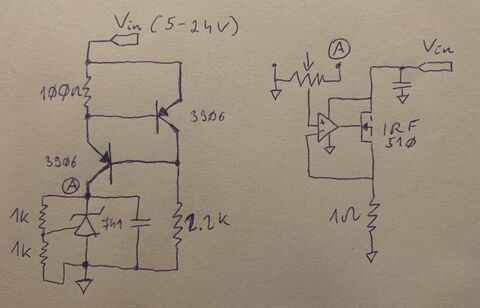 Vin (5-24V)
100Ω
3906
3906
A
1k
1k
741
2.2k
A
Vin
+
-
IRF
510
1Ω